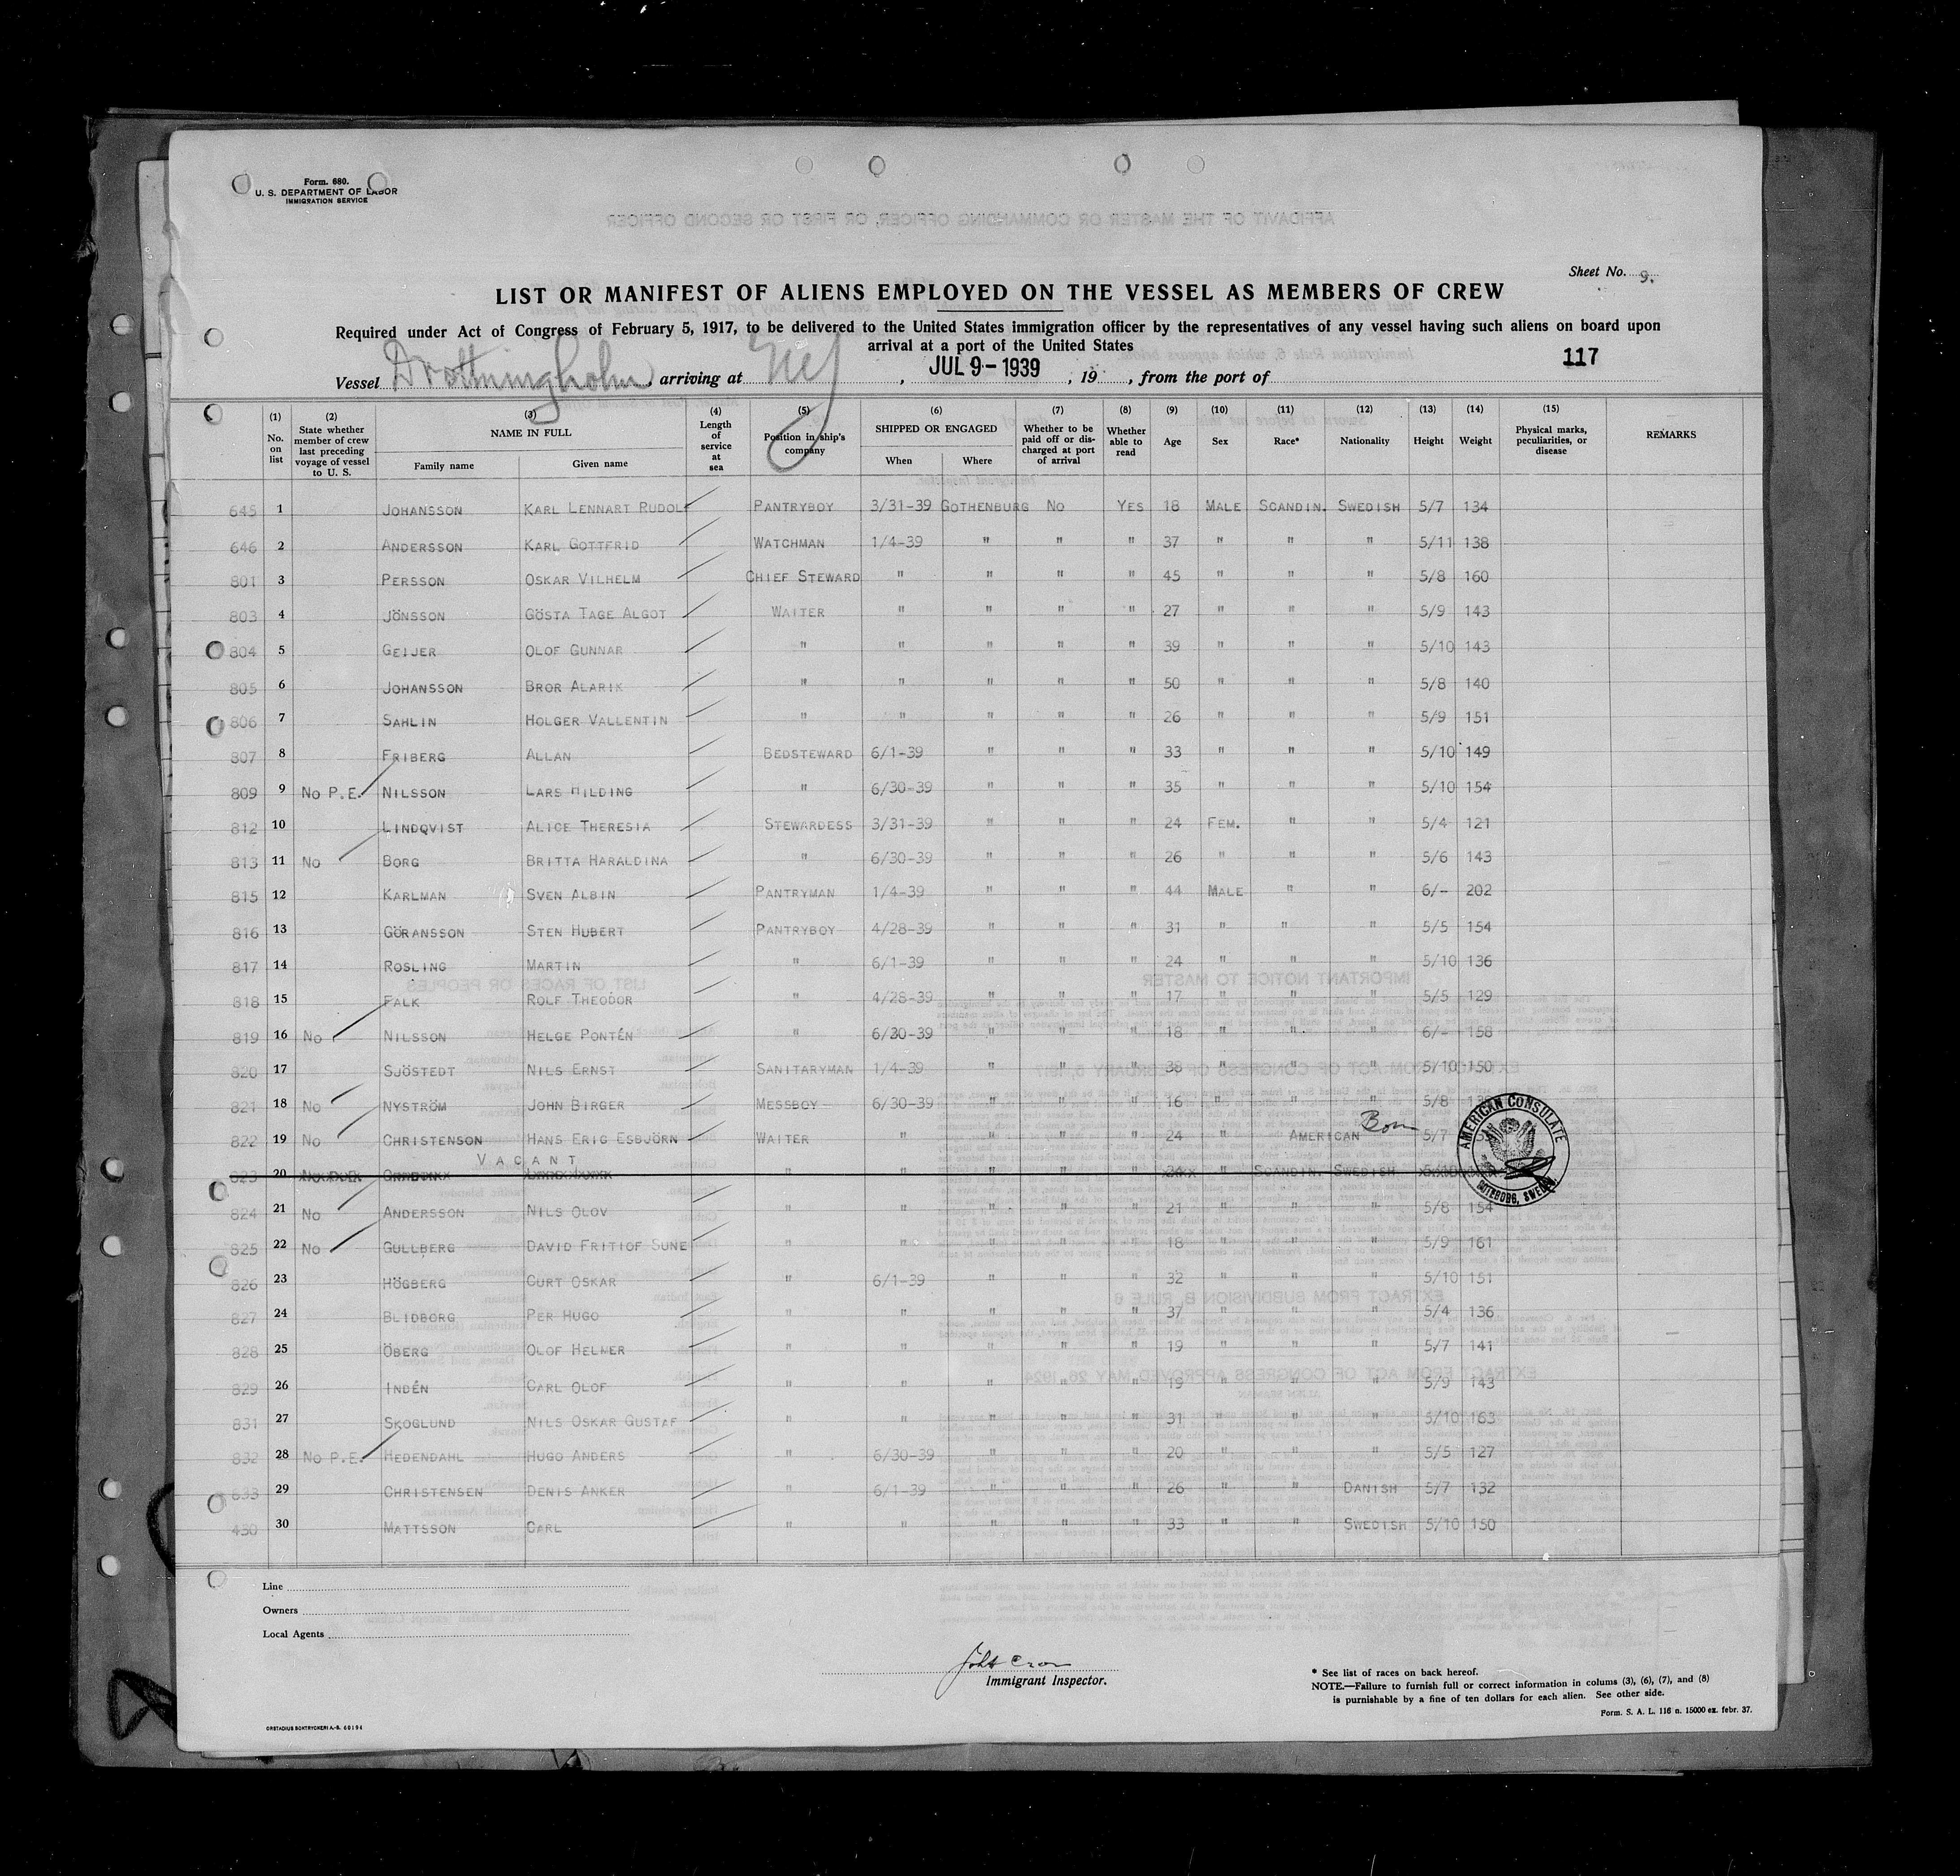 Form. 680.
U. S. DEPARTMENT OF LABOR
IMMIGRATION SERVICE
Sheet No. 9.
LIST OR MANIFEST OF ALIENS EMPLOYED ON THE VESSEL AS MEMBERS OF CREW
Required under Act of Congress of February 5, 1917, to be delivered to the United States immigration officer by the representatives of any vessel having such aliens on board upon
arrival at a port of the United States
117
Vessel Drottningholm, arriving at NY, JUL 9-1939, 19 , from the port of
(1) No. on list (2) State whether member of crew last preceding voyage of vessel to U. S. (3) NAME IN FULL Family name Given name (4) Length of service at sea (5) Position in ship's company (6) SHIPPED OR ENGAGED When Where (7) Whether to be paid off or discharged at port of arrival (8) Whether able to read (9) Age (10) Sex (11) Race* (12) Nationality (13) Height (14) Weight (15) Physical marks, peculiarities, or disease REMARKS
645 1 JOHANSSON KARL LENNART RUDOLF PANTRYBOY 3/31-39 GOTHENBURG NO YES 18 MALE SCANDIN. SWEDISH 5/7 134
646 2 ANDERSSON KARL GOTTFRID WATCHMAN 1/4-39 " " " 37 " " " 5/11 138
801 3 PERSSON OSKAR VILHELM CHIEF STEWARD " " " " 45 " " " 5/8 160
803 4 JÖNSSON GÖSTA TAGE ALGOT WAITER " " " " 27 " " " 5/9 143
804 5 GEIJER OLOF GUNNAR " " " " " 39 " " " 5/10 143
805 6 JOHANSSON BROR ALARIK " " " " " 50 " " " 5/8 140
806 7 SAHLIN HOLGER VALLENTIN " " " " " 26 " " " 5/9 151
807 8 FRIBERG ALLAN BEDSTEWARD 6/1-39 " " " 33 " " " 5/10 149
809 9 NO P.E. NILSSON LARS HILDING " 6/30-39 " " " 35 " " " 5/10 154
812 10 LINDQVIST ALICE THERESIA STEWARDESS 3/31-39 " " " 24 FEM. " " 5/4 121
813 11 NO BORG BRITTA HARALDINA " 6/30-39 " " " 26 " " " 5/6 143
815 12 KARLMAN SVEN ALBIN PANTRYMAN 1/4-39 " " " 44 MALE " " 6/-- 202
816 13 GÖRANSSON STEN HUBERT PANTRYBOY 4/28-39 " " " 31 " " " 5/5 154
817 14 ROSLING MARTIN " 6/1-39 " " " 24 " " " 5/10 136
818 15 FALK ROLF THEODOR " 4/28-39 " " " 17 " " " 5/5 129
819 16 NO NILSSON HELGE PONTÉN " 6/30-39 " " " 18 " " " 6/- 158
820 17 SJÖSTEDT NILS ERNST SANITARYMAN 1/4-39 " " " 38 " " " 5/10 150
821 18 NO NYSTRÖM JOHN BIRGER MESSBOY 6/30-39 " " " 16 " " " 5/8
822 19 NO CHRISTENSON HANS ERIG ESBJÖRN WAITER " " " " 24 " AMERICAN Born 5/7
VACANT
823 20 " " " " " " SCANDIN. SWEDISH
824 21 NO ANDERSSON NILS OLOV " " " " " 21 " " " 5/8 154
825 22 NO GULLBERG DAVID FRITIOF SUNE " " " " " 18 " " " 5/9 161
826 23 HÖGBERG CURT OSKAR " 6/1-39 " " " 32 " " " 5/10 151
827 24 BLIDBORG PER HUGO " " " " " 37 " " " 5/4 136
828 25 ÖBERG OLOF HELMER " " " " " 19 " " " 5/7 141
829 26 INDÉN CARL OLOF " " " " " 19 " " " 5/9 143
831 27 SKOGLUND NILS OSKAR GUSTAF " " " " " 31 " " " 5/10 163
832 28 NO P.E. HEDENDAHL HUGO ANDERS " 6/30-39 " " " 20 " " " 5/5 127
833 29 CHRISTENSEN DENIS ANKER " 6/1-39 " " " 26 " " DANISH 5/7 132
430 30 MATTSSON CARL " " " " " 33 " " SWEDISH 5/10 150
AMERICAN CONSULATE
GOTEBORG, SWEDEN
Line
Owners
Local Agents
Immigrant Inspector.
* See list of races on back hereof.
NOTE.—Failure to furnish full or correct information in colums (3), (6), (7), and (8)
is punishable by a fine of ten dollars for each alien. See other side.
Form. S. A. L. 116 n. 15000 ex. febr. 37.
ORSTADIUS BOKTRYCKERI A.-B. 60194